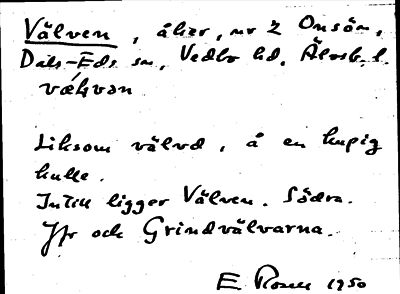 Välven, åker, nr 2 Onsön,
Dals-Eds sn, Vedbo hd, Älvsb. l.
Liksom välvd, å en kupig
kulle.
Intill ligger Välven. Södra.
Jfr och Grindvälvarna.
E 1950